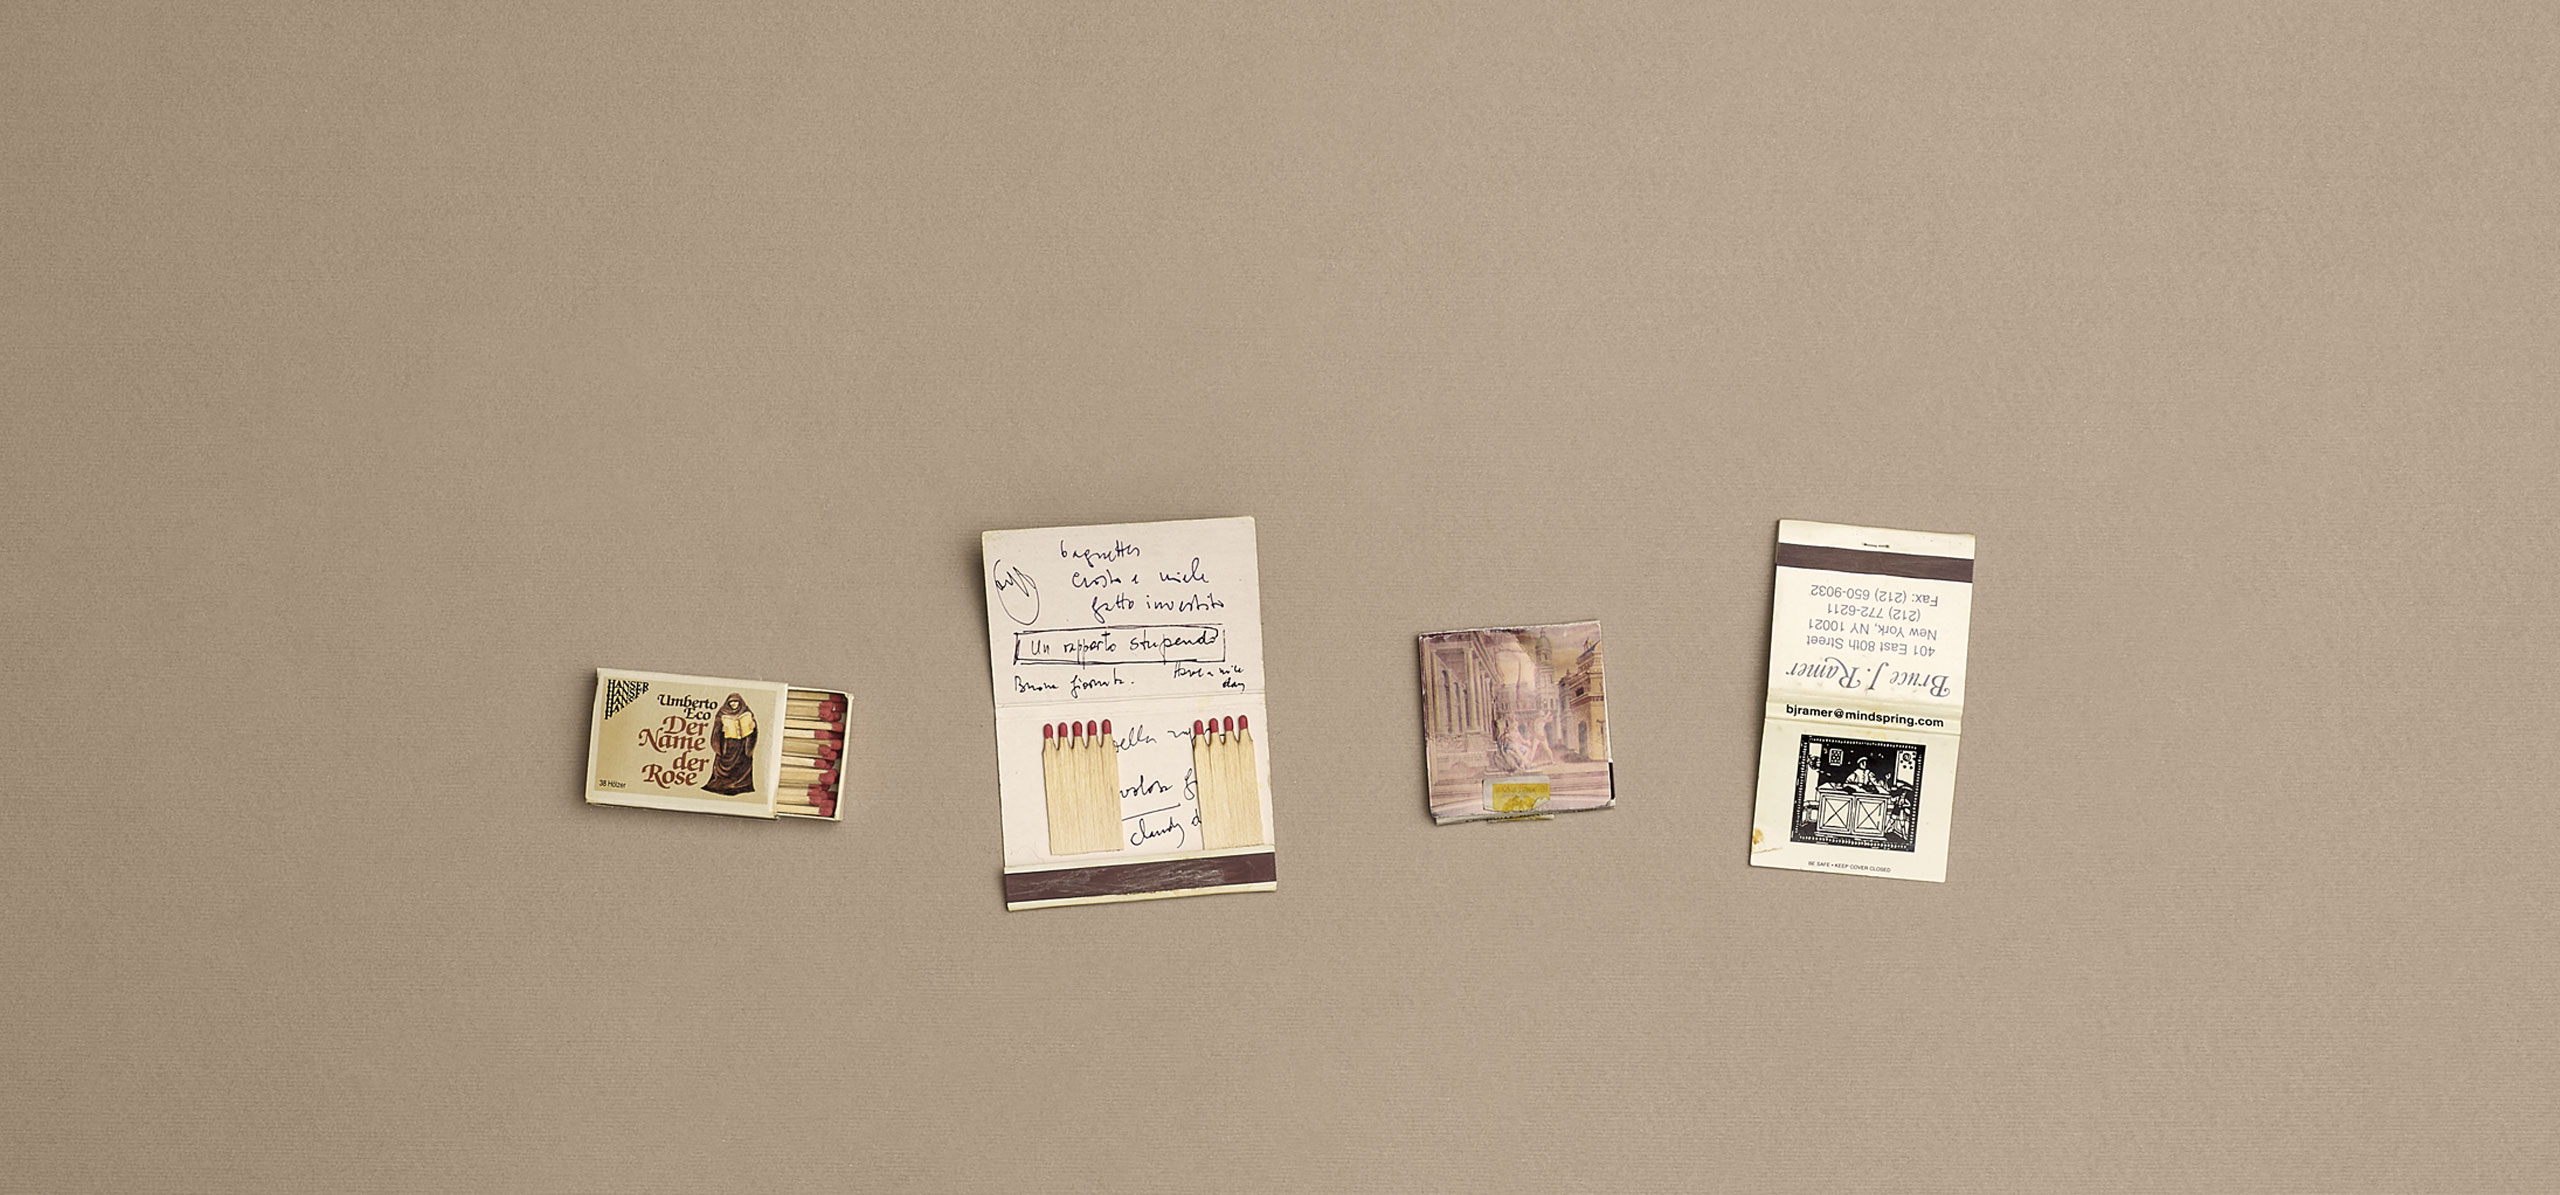 HANSER
HANSER
HANSER
HANSER
Umberto
Eco
Der
Name
der
Rose
38 Hölzer
baguettes
crosta e miele
gatto investito
Un rapporto stupendo
Buona giornata.
Have a nice
day
della
claudy d
Bruce J. Ramer
401 East 80th Street
New York, NY 10021
(212) 772-6211
Fax: (212) 650-9032
bjramer@mindspring.com
BE SAFE • KEEP COVER CLOSED